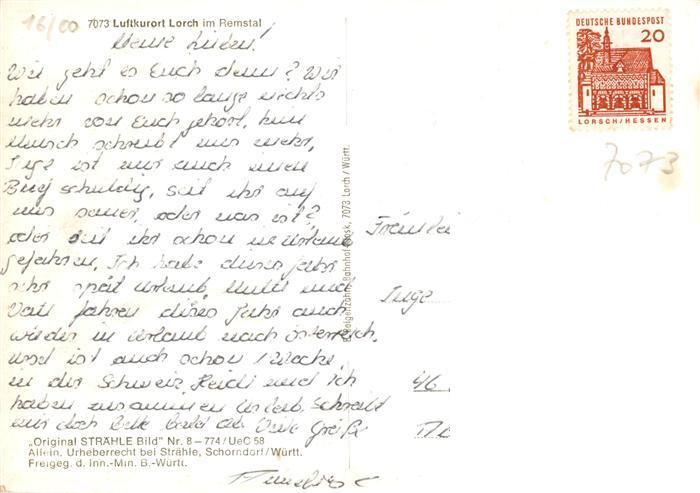 16/00
7073 Luftkurort Lorch im Remstal
Meine Lieben!
Wie geht es Euch denn? Wir
haben schon so lange nichts
mehr von Euch gehört, kein
Mensch schreibt uns mehr,
Inge ist mir auch einen
Brief schuldig, seit ihr auf
uns sauer, oder was ist?
oder seit ihr schon in Urlaub
gefahren. Ich habe dieses Jahr
sehr spät Urlaub, Mutti und
Vati fahren dieses Jahr auch
wieder in Urlaub nach Österreich.
ist auch schon 1 Woche
in der Schweiz, Heidi und ich
haben zusammen Urlaub. Schreibt
mir doch bitte bald ab. Viele Grüße
„Original STRÄHLE Bild" Nr. 8–774/UeC 58
Allein. Urheberrecht bei Strähle, Schorndorf/Württ.
Freigeg. d. Inn.-Min. B.-Württ.
Bahnhof-Kiosk, 7073 Lorch/Württ.
DEUTSCHE BUNDESPOST
20
LORSCH/HESSEN
7073
Inge
46